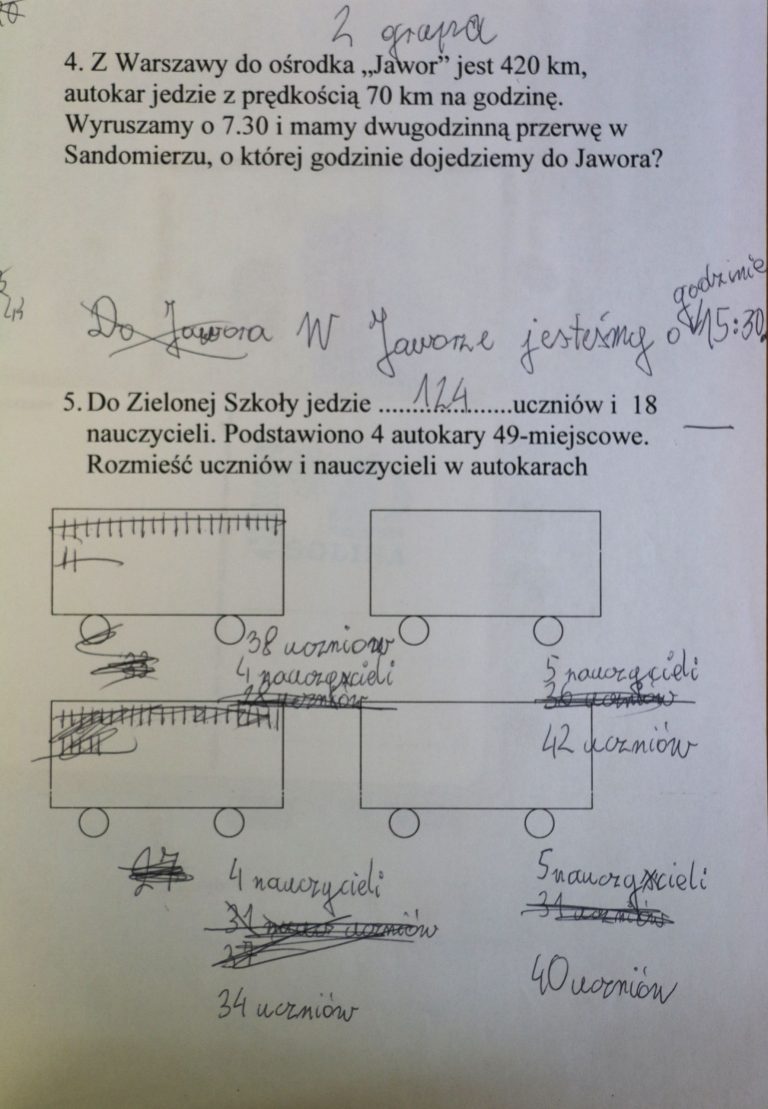 2 grupa
4. Z Warszawy do ośrodka „Jawor” jest 420 km,
autokar jedzie z prędkością 70 km na godzinę.
Wyruszamy o 7.30 i mamy dwugodzinną przerwę w
Sandomierzu, o której godzinie dojedziemy do Jawora?
godzinie
Do Jawora W Jaworze jesteśmy o 15:30.
5. Do Zielonej Szkoły jedzie ........124........uczniów i 18
nauczycieli. Podstawiono 4 autokary 49-miejscowe.
Rozmieść uczniów i nauczycieli w autokarach
38 uczniów
33
4 nauczycieli
5 nauczycieli
28 uczniów
30 uczniów
42 uczniów
27
4 nauczycieli
5 nauczycieli
31 uczniów
31 uczniów
27
34 uczniów
40 uczniów